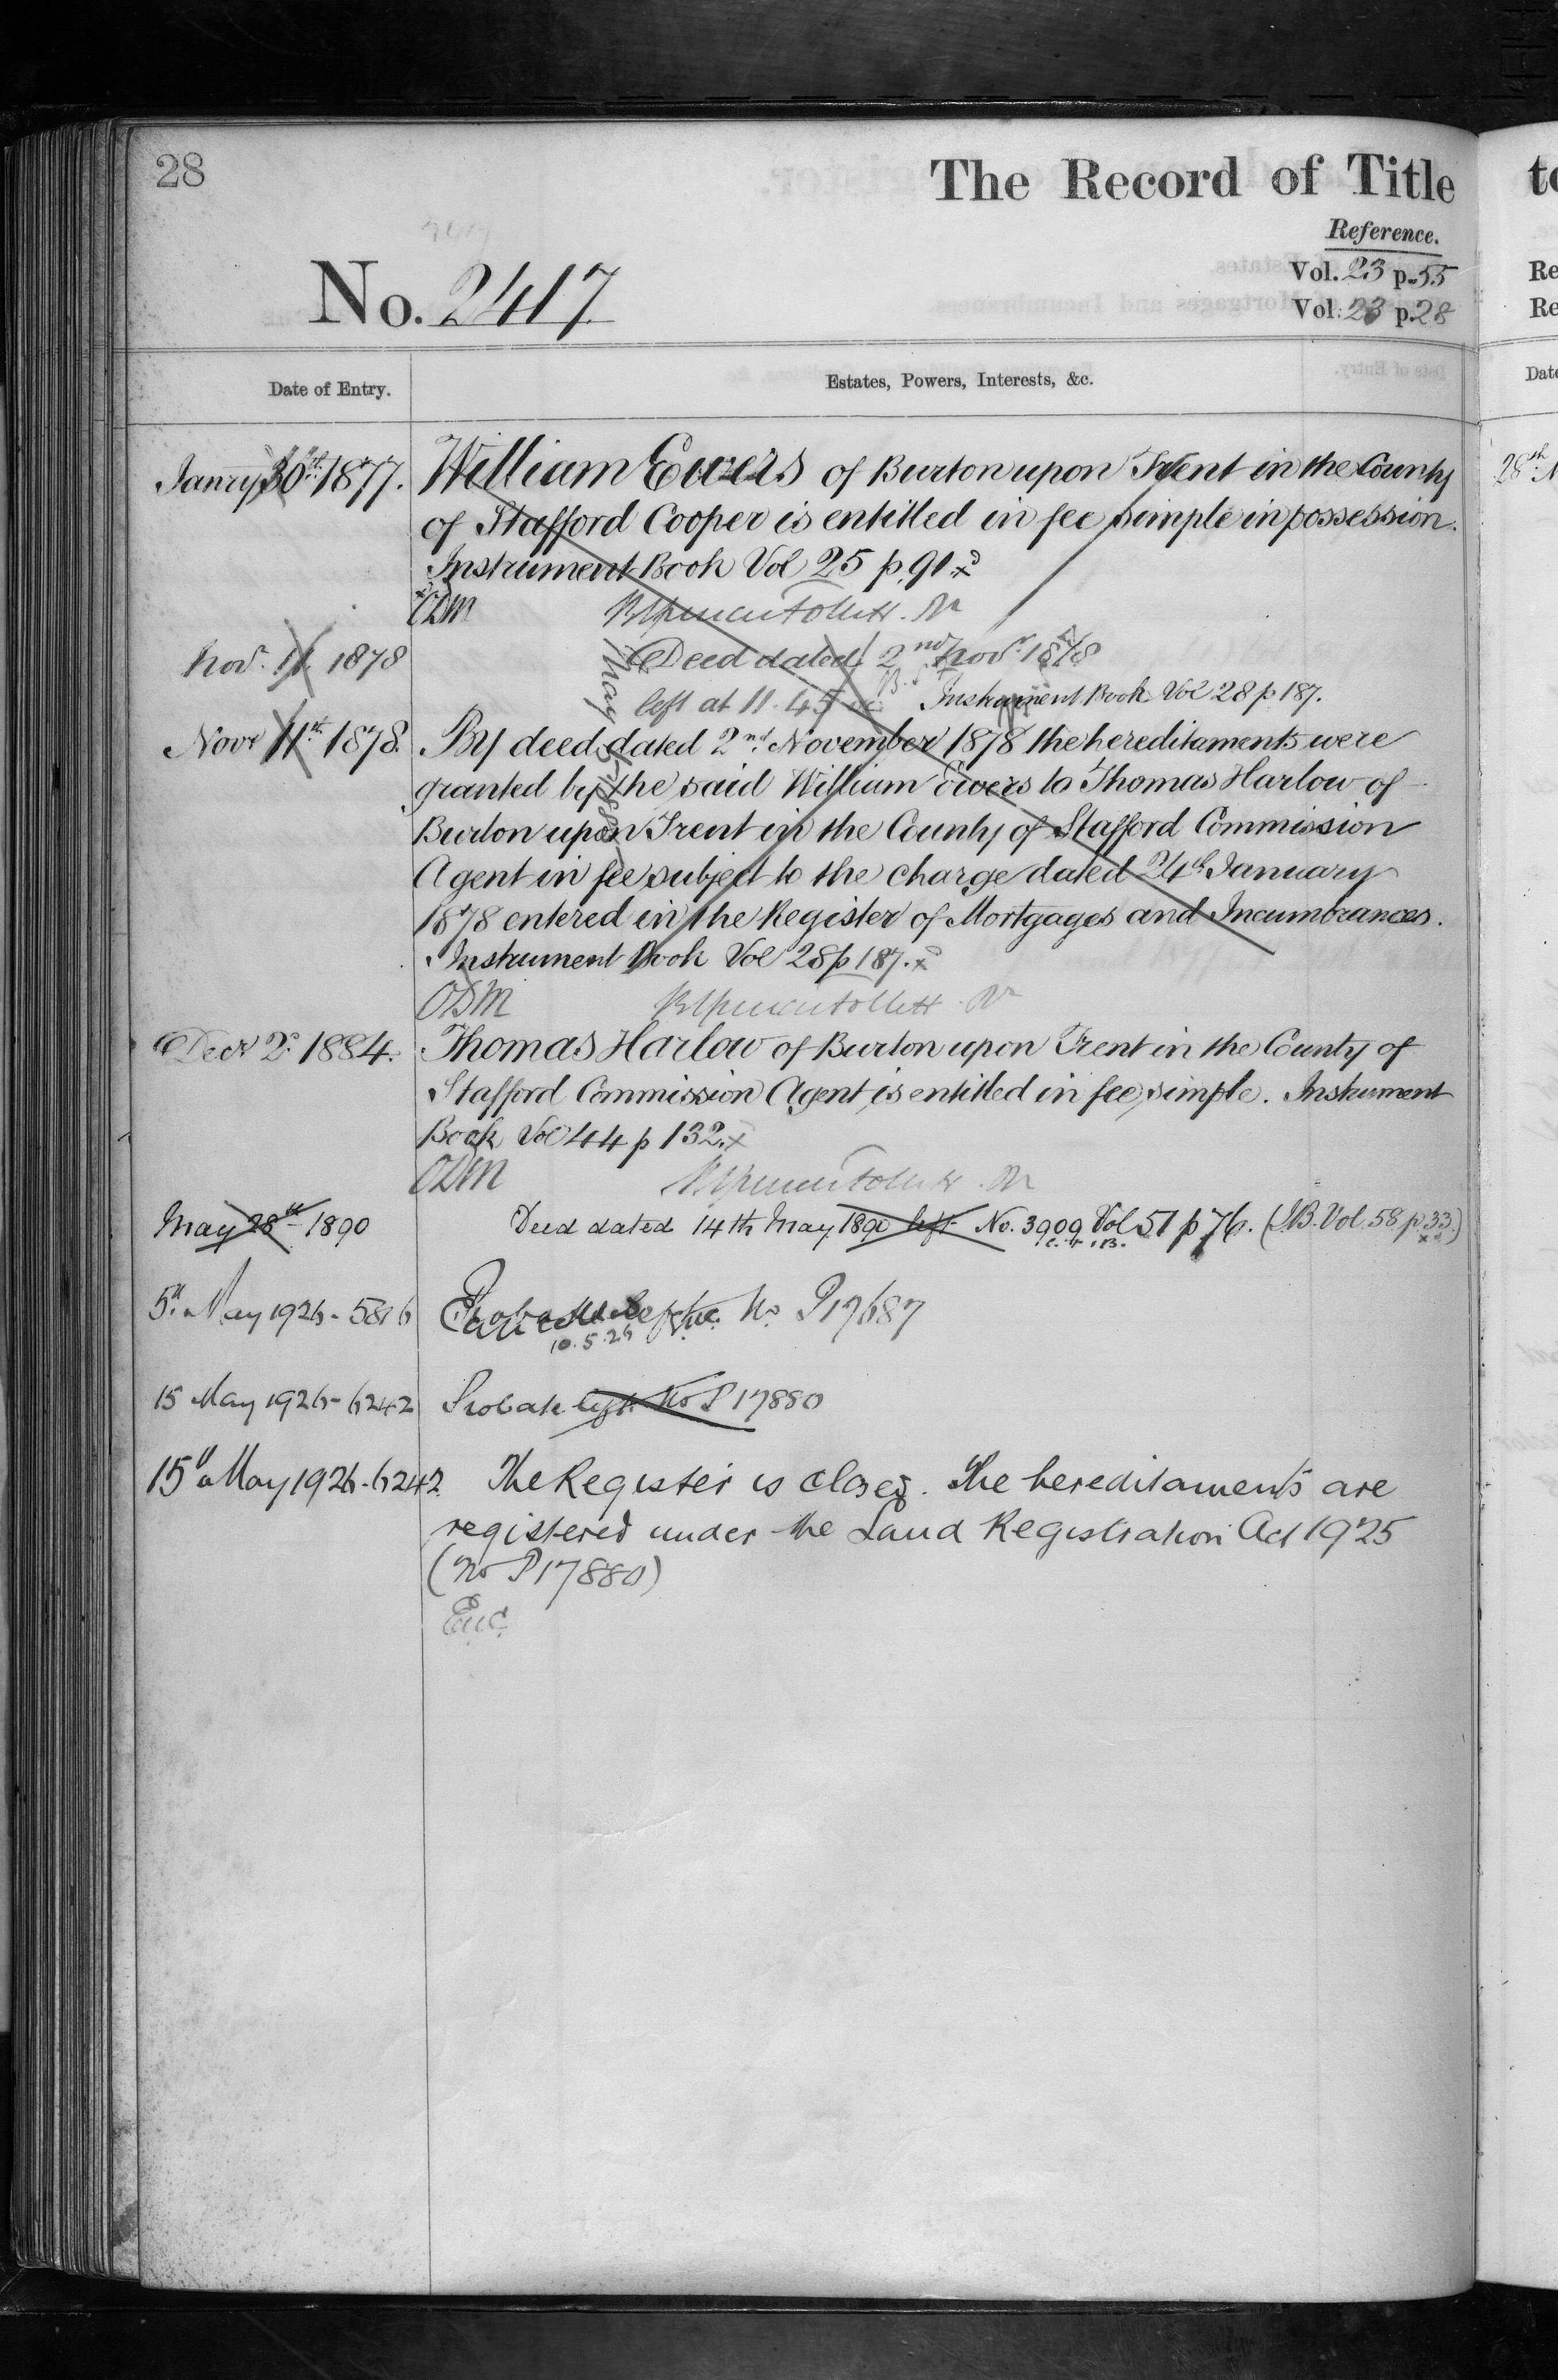 28
The Record of Title
Reference.
Vol. 23 p. 55
Vol. 23 p. 28
No. 2417
Date of Entry.
Estates, Powers, Interests, &c.
Janry 30th 1877. William Ewers of Burton upon Trent in the County
of Stafford Cooper is entitled in fee simple in possession.
Instrument Book Vol 25 p 91
ODM
Nov. 11 1878 Deed dated 2nd Novr. 1878
left at 11.45 Instrument Book Vol 28 p 187.
Novr 11th 1878. By deed dated 2nd November 1878 the hereditaments were
granted by the said William Ewers to Thomas Harlow of
Burton upon Trent in the County of Stafford Commission
Agent in fee subject to the charge dated 24th January
1878 entered in the Register of Mortgages and Incumbrances.
Instrument Book Vol 28 p 187.
ODM
Decr 2d 1884. Thomas Harlow of Burton upon Trent in the County of
Stafford Commission Agent is entitled in fee simple. Instrument
Book Vol 44 p 132.
ODM
May 28th 1890 Deed dated 14th May 1890 left No. 3909 Vol 51 p 76. (I.B. Vol. 58 p. 33.)
5th May 1926 - 5816 Probate No P17687
10.5.26
15 May 1926 - 6242 Probate left No P17880
15th May 1926 - 6242 The Register is closed. The hereditaments are
registered under the Land Registration Act 1925
(No P17880)
to
Re
Re
Date
28th